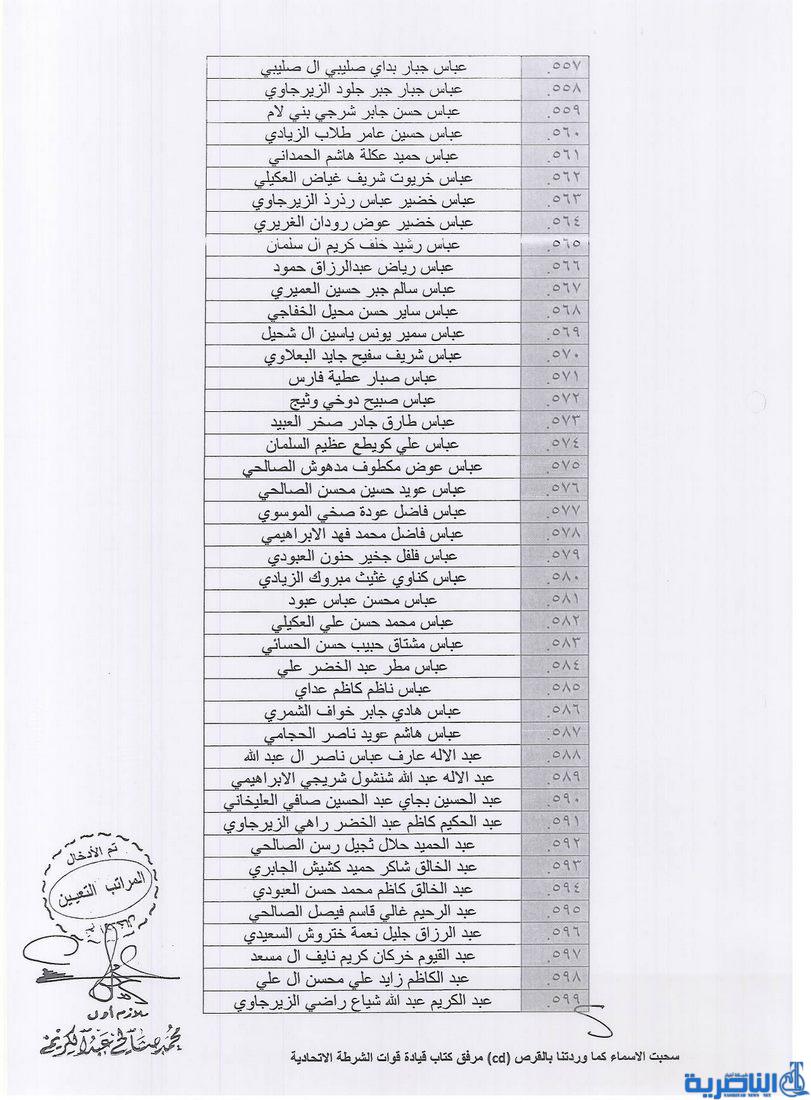 ٥٥٧. عباس جبار بداي صليبي ال صليبي
٥٥٨. عباس جبار جبر جلود الزيرجاوي
٥٥٩. عباس حسن جابر شرجي بني لام
٥٦٠. عباس حسين عامر طلاب الزيادي
٥٦١. عباس حميد عكلة هاشم الحمداني
٥٦٢. عباس خريوت شريف غياض العكيلي
٥٦٣. عباس خضير عباس رذرذ الزيرجاوي
٥٦٤. عباس خضير عوض رودان الغريري
٥٦٥. عباس رشيد خلف كريم ال سلمان
٥٦٦. عباس رياض عبدالرزاق حمود
٥٦٧. عباس سالم جبر حسين العميري
٥٦٨. عباس ساير حسن محيل الخفاجي
٥٦٩. عباس سمير يونس ياسين ال شحيل
٥٧٠. عباس شريف سفيح جايد البعلاوي
٥٧١. عباس صبار عطية فارس
٥٧٢. عباس صبيح دوخي وثيج
٥٧٣. عباس طارق جادر صخر العبيد
٥٧٤. عباس علي كويطع عظيم السلمان
٥٧٥. عباس عوض مكطوف مدهوش الصالحي
٥٧٦. عباس عويد حسين محسن الصالحي
٥٧٧. عباس فاضل عودة صخي الموسوي
٥٧٨. عباس فاضل محمد فهد الابراهيمي
٥٧٩. عباس فلفل جخير حنون العبودي
٥٨٠. عباس كناوي غثيث مبروك الزيادي
٥٨١. عباس محسن عباس عبود
٥٨٢. عباس محمد حسن علي العكيلي
٥٨٣. عباس مشتاق حبيب حسن الحسائي
٥٨٤. عباس مطر عبد الخضر علي
٥٨٥. عباس ناظم كاظم عداي
٥٨٦. عباس هادي جابر خواف الشمري
٥٨٧. عباس هاشم عويد ناصر الحجامي
٥٨٨. عبد الاله عارف عباس ناصر ال عبد الله
٥٨٩. عبد الاله عبد الله شنشول شريجي الابراهيمي
٥٩٠. عبد الحسين بجاي عبد الحسين صافي العليخاني
٥٩١. عبد الحكيم كاظم عبد الخضر راهي الزيرجاوي
٥٩٢. عبد الحميد حلال ثجيل رسن الصالحي
٥٩٣. عبد الخالق شاكر حميد كشيش الجابري
٥٩٤. عبد الخالق كاظم محمد حسن العبودي
٥٩٥. عبد الرحيم غالي قاسم فيصل الصالحي
٥٩٦. عبد الرزاق جليل نعمة ختروش السعيدي
٥٩٧. عبد القيوم خركان كريم نايف ال مسعد
٥٩٨. عبد الكاظم زايد علي محسن ال علي
٥٩٩. عبد الكريم عبد الله شياع راضي الزيرجاوي
تم الأدخال
المراتب التعيين
ملازم أول
محمد صالح عبد الكريم
سحبت الاسماء كما وردتنا بالقرص (cd) مرفق كتاب قيادة قوات الشرطة الاتحادية
شبكة أخبار
الناصرية
NASIRIYAH NEWS NET